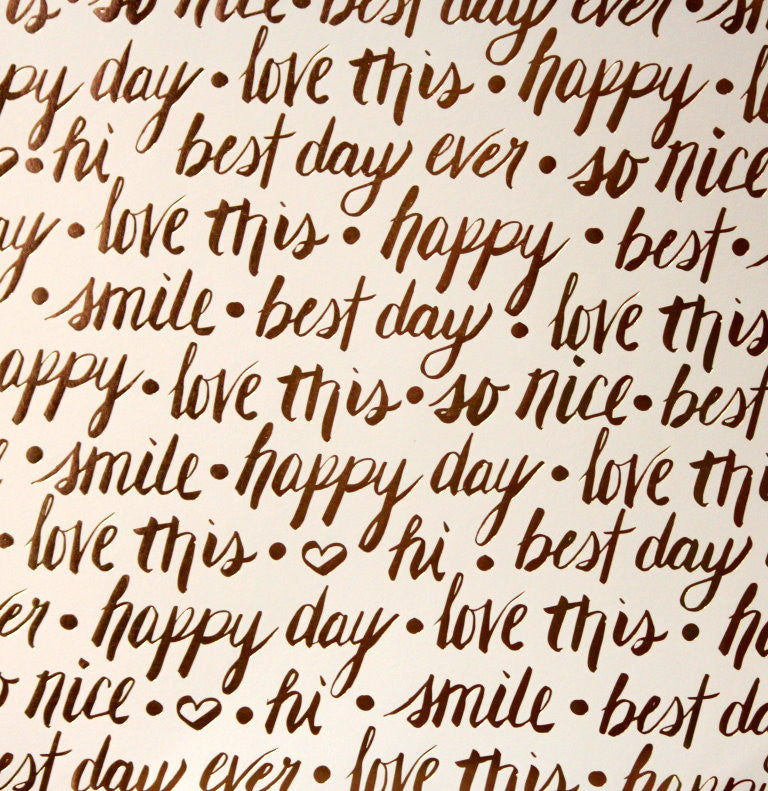 is • so nice • best day ever • sm
py day • love this • happy • l
♡ • hi best day ever • so nice
ay • love this • happy • best •
• smile • best day • love this
appy • love this • so nice • best
• smile • happy day • love thi
• love this • ♡ hi • best day
er • happy day • love this • ha
o nice • ♡ • hi • smile • best da
est day ever • love this • happy